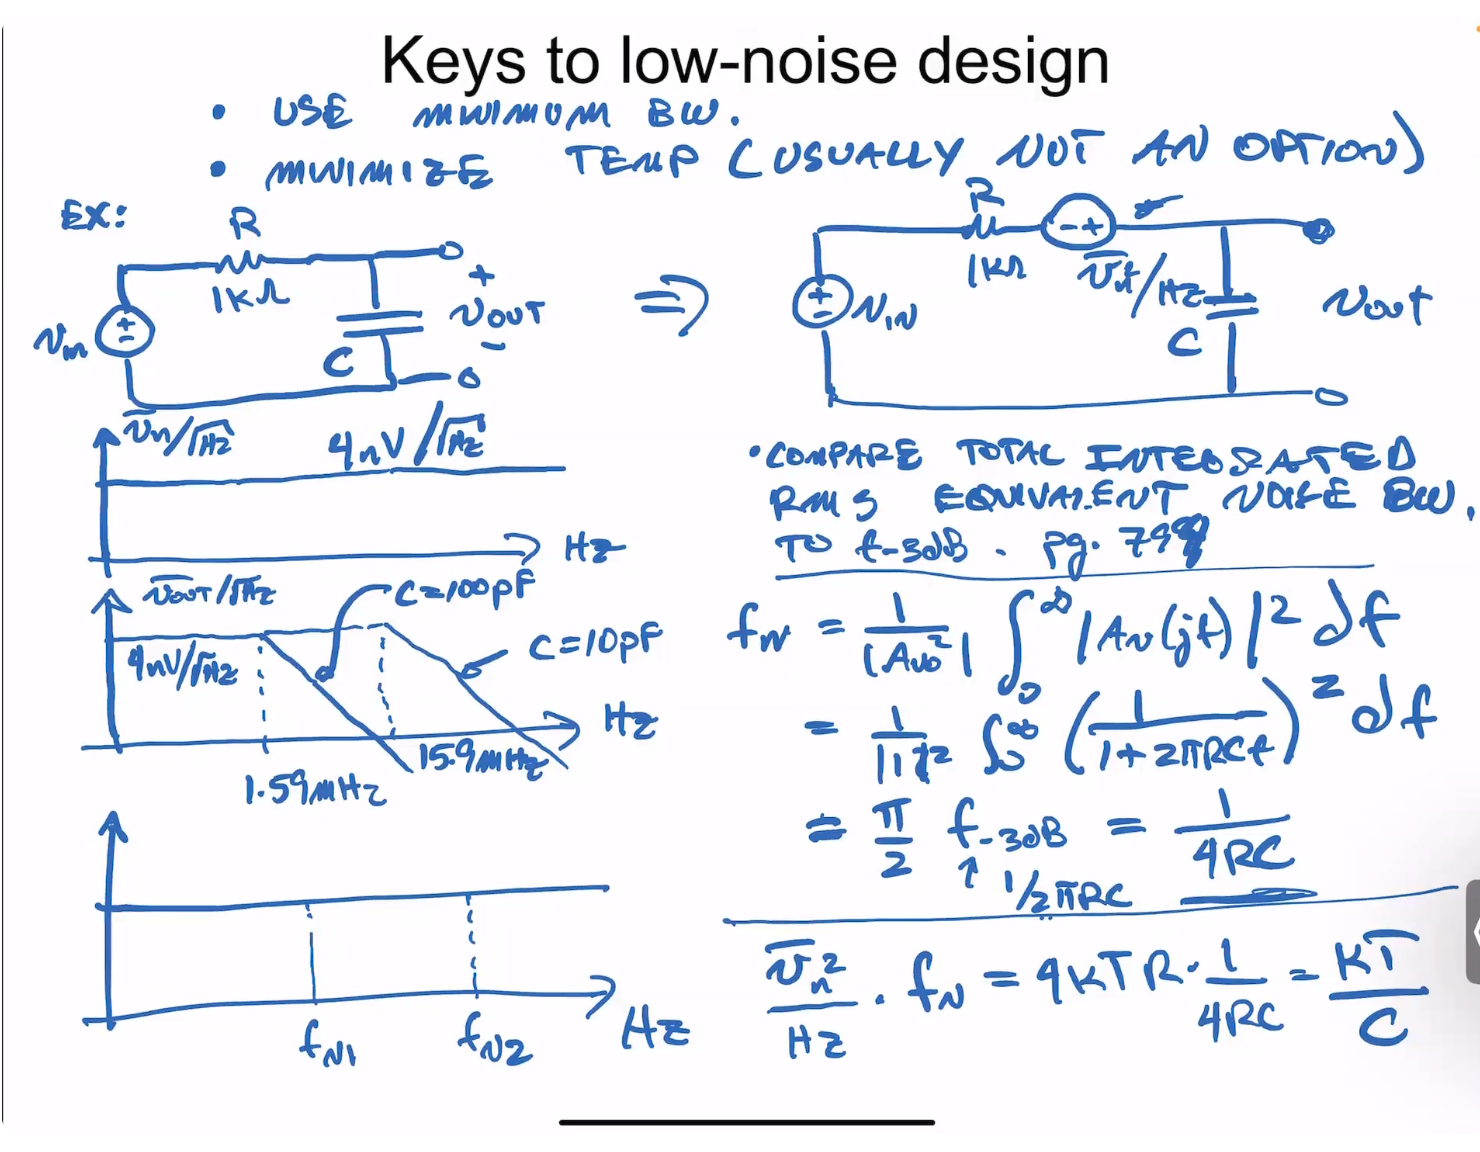 Keys to low-noise design
• USE MINIMUM BW.
• MINIMIZE TEMP (USUALLY NOT AN OPTION)
EX:
R
1KΩ
+
-
Vin
C
+
VOUT
-
⇒
R
1KΩ
- +
V̅n²/Hz
+
-
VIN
C
VOUT
V̅n/√Hz
4nV/√Hz
Hz
V̅OUT/√Hz
C=100pF
C=10pF
4nV/√Hz
Hz
1.59MHz
15.9MHz
fN1
fN2
Hz
• COMPARE TOTAL INTEGRATED
RMS EQUIVALENT NOISE BW.
TO f-3dB. pg.
fN = 1/|Avo²| ∫0^∞ |Av(jf)|² df
= 1/|1|² ∫0^∞ (1/(1+2πRCf))² df
= π/2 f-3dB = 1/4RC
↑ 1/2πRC
V̅n²/Hz · fN = 4KTR · 1/4RC = KT/C